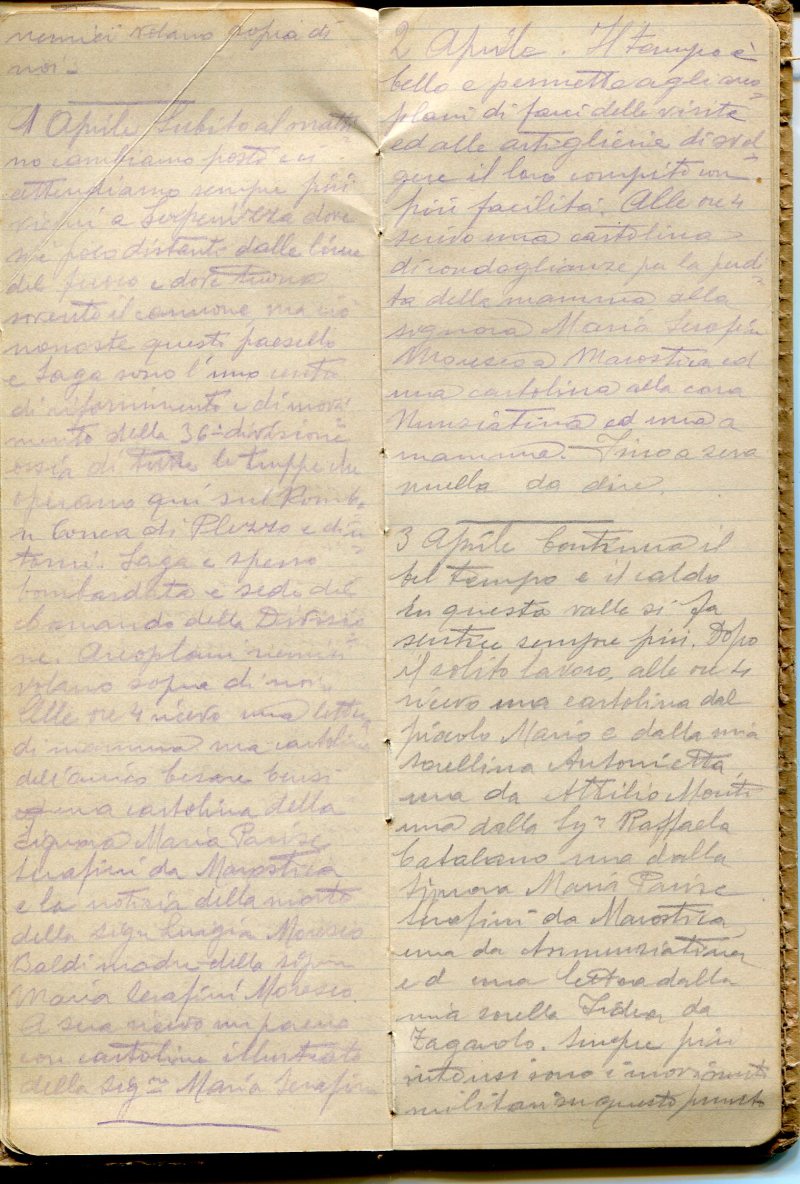 nemici volano sopra di
noi.
1 Aprile Subito al matti
no cambiamo posto e ci
attendiamo sempre più
vicini a Serpenizza dove
si è poco distanti dalle linee
del fuoco e dove tuona
sovente il cannone, ma ciò
nonoste questo paesello
e Saga sono l'uno centro
di rifornimento e di movi
mento della 36ª divisione
ossia di tutte le truppe che
operano qui sul Rombo
n Conca di Plezzo e din
torni. Saga e spesso
bombardata è sede del
Comando della Divisio
ne. Areoplani nemici
volano sopra di noi.
Alle ore 4 ricevo una lettera
di mamma una cartolina
dell'amico Cesare
ed una cartolina della
Signora Maria Parise
Serafini da Marostica
e la notizia della morte
della Sigra Luigia Moresco
Baldi madre della signora
Maria Serafini Moresco.
A sera ricevo un pacco
con cartoline illustrate
della Sigra Maria Serafini
2 Aprile. Il tempo è
bello e permette agli areo
plani di farci delle visite
ed alle artiglierie di svol
gere il loro compito con
più facilità. Alle ore 4
scrivo una cartolina
di condoglianze per la perdi
ta della mamma alla
signora Maria Serafini
Moresco a Marostica ed
una cartolina alla cara
Nunziatina ed una a
mamma. Fino a sera
nulla da dire.
3 Aprile Continua il
bel tempo e il caldo
in questa valle si fa
sentire sempre più. Dopo
il solito lavoro, alle ore 4
ricevo una cartolina dal
piccolo Mario e dalla mia
sorellina Antonietta,
una da Attilio Monti
una dalla Sgra Raffaela
Catalano una dalla
Signora Maria Parise
Serafini da Marostica
una da Annunziatina
ed una lettera dalla
mia sorella da
Zagarolo. Sempre più
intensi sono i movimenti
militari su questo punto